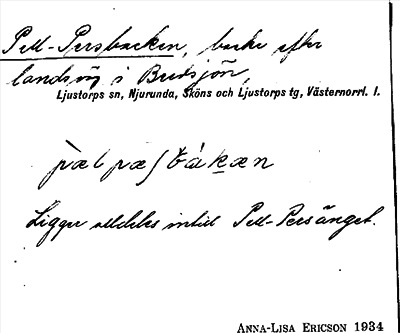 Pell-Persbacken, backe efter
landsväg i Bredsjön,
Ljustorps sn, Njurunda, Sköns och Ljustorps tg, Västernorrl. l.
Ligger alldeles intill Pell-Persänget.
ANNA-LISA ERICSON 1934